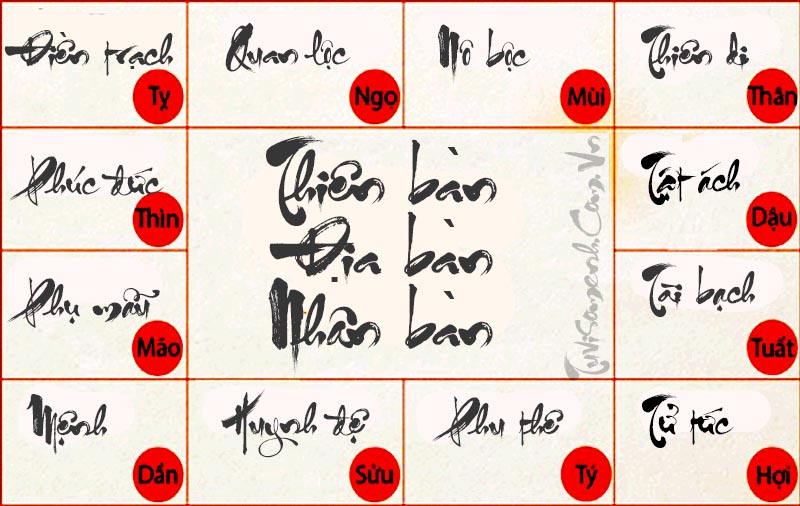 Điền trạch
Tỵ
Quan lộc
Ngọ
Nô bộc
Mùi
Thiên di
Thân
Phúc đức
Thìn
Thiên bàn
Địa bàn
Nhân bàn
Tuvisomenh.Com.Vn
Tật ách
Dậu
Phụ mẫu
Mảo
Tài bạch
Tuất
Mệnh
Dần
Huynh đệ
Sửu
Phu thê
Tý
Tử tức
Hợi